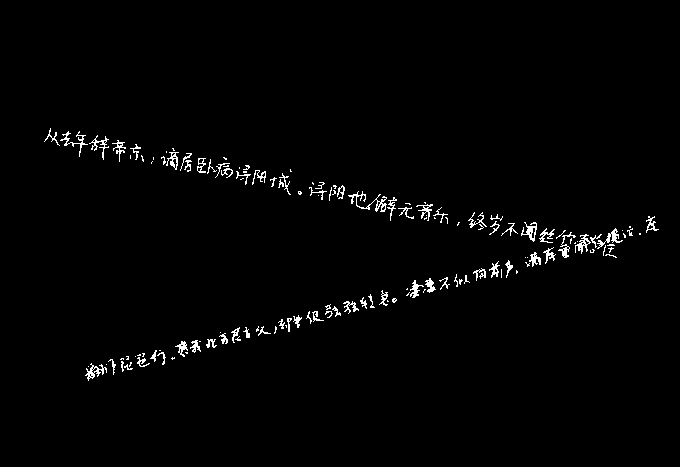 从去年辞帝京，谪居卧病浔阳城。浔阳地僻无音乐，终岁不闻丝竹
翻作琵琶行。感我此言良久，却坐促弦弦转急。凄凄不似向前声，满座重闻皆掩泣。座